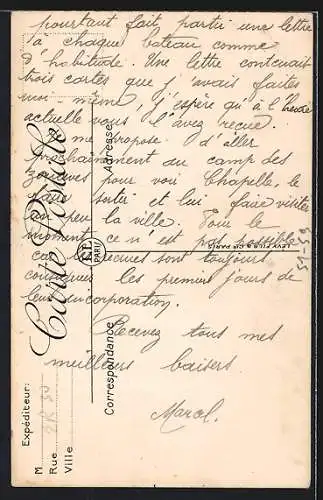 pourtant fait partir une lettre
à chaque bateau comme
d'habitude. Une lettre contenait
trois cartes que j'avais faites
moi-même, j'espère qu'à l'heure
actuelle vous l'avez reçue.
Je me propose d'aller
prochainement au camp des
zouaves pour voir Chapelle, le
faire sortir et lui faire visiter
un peu la ville. Pour le
moment ce n'est pas possible
car les recrues sont toujours
consignées les premiers jours de
leur incorporation.
Recevez tous mes
meilleurs baisers
Marcel.
Carte Postale
Adresse
Correspondance
PARIS
Expéditeur:
M
Rue
Ville